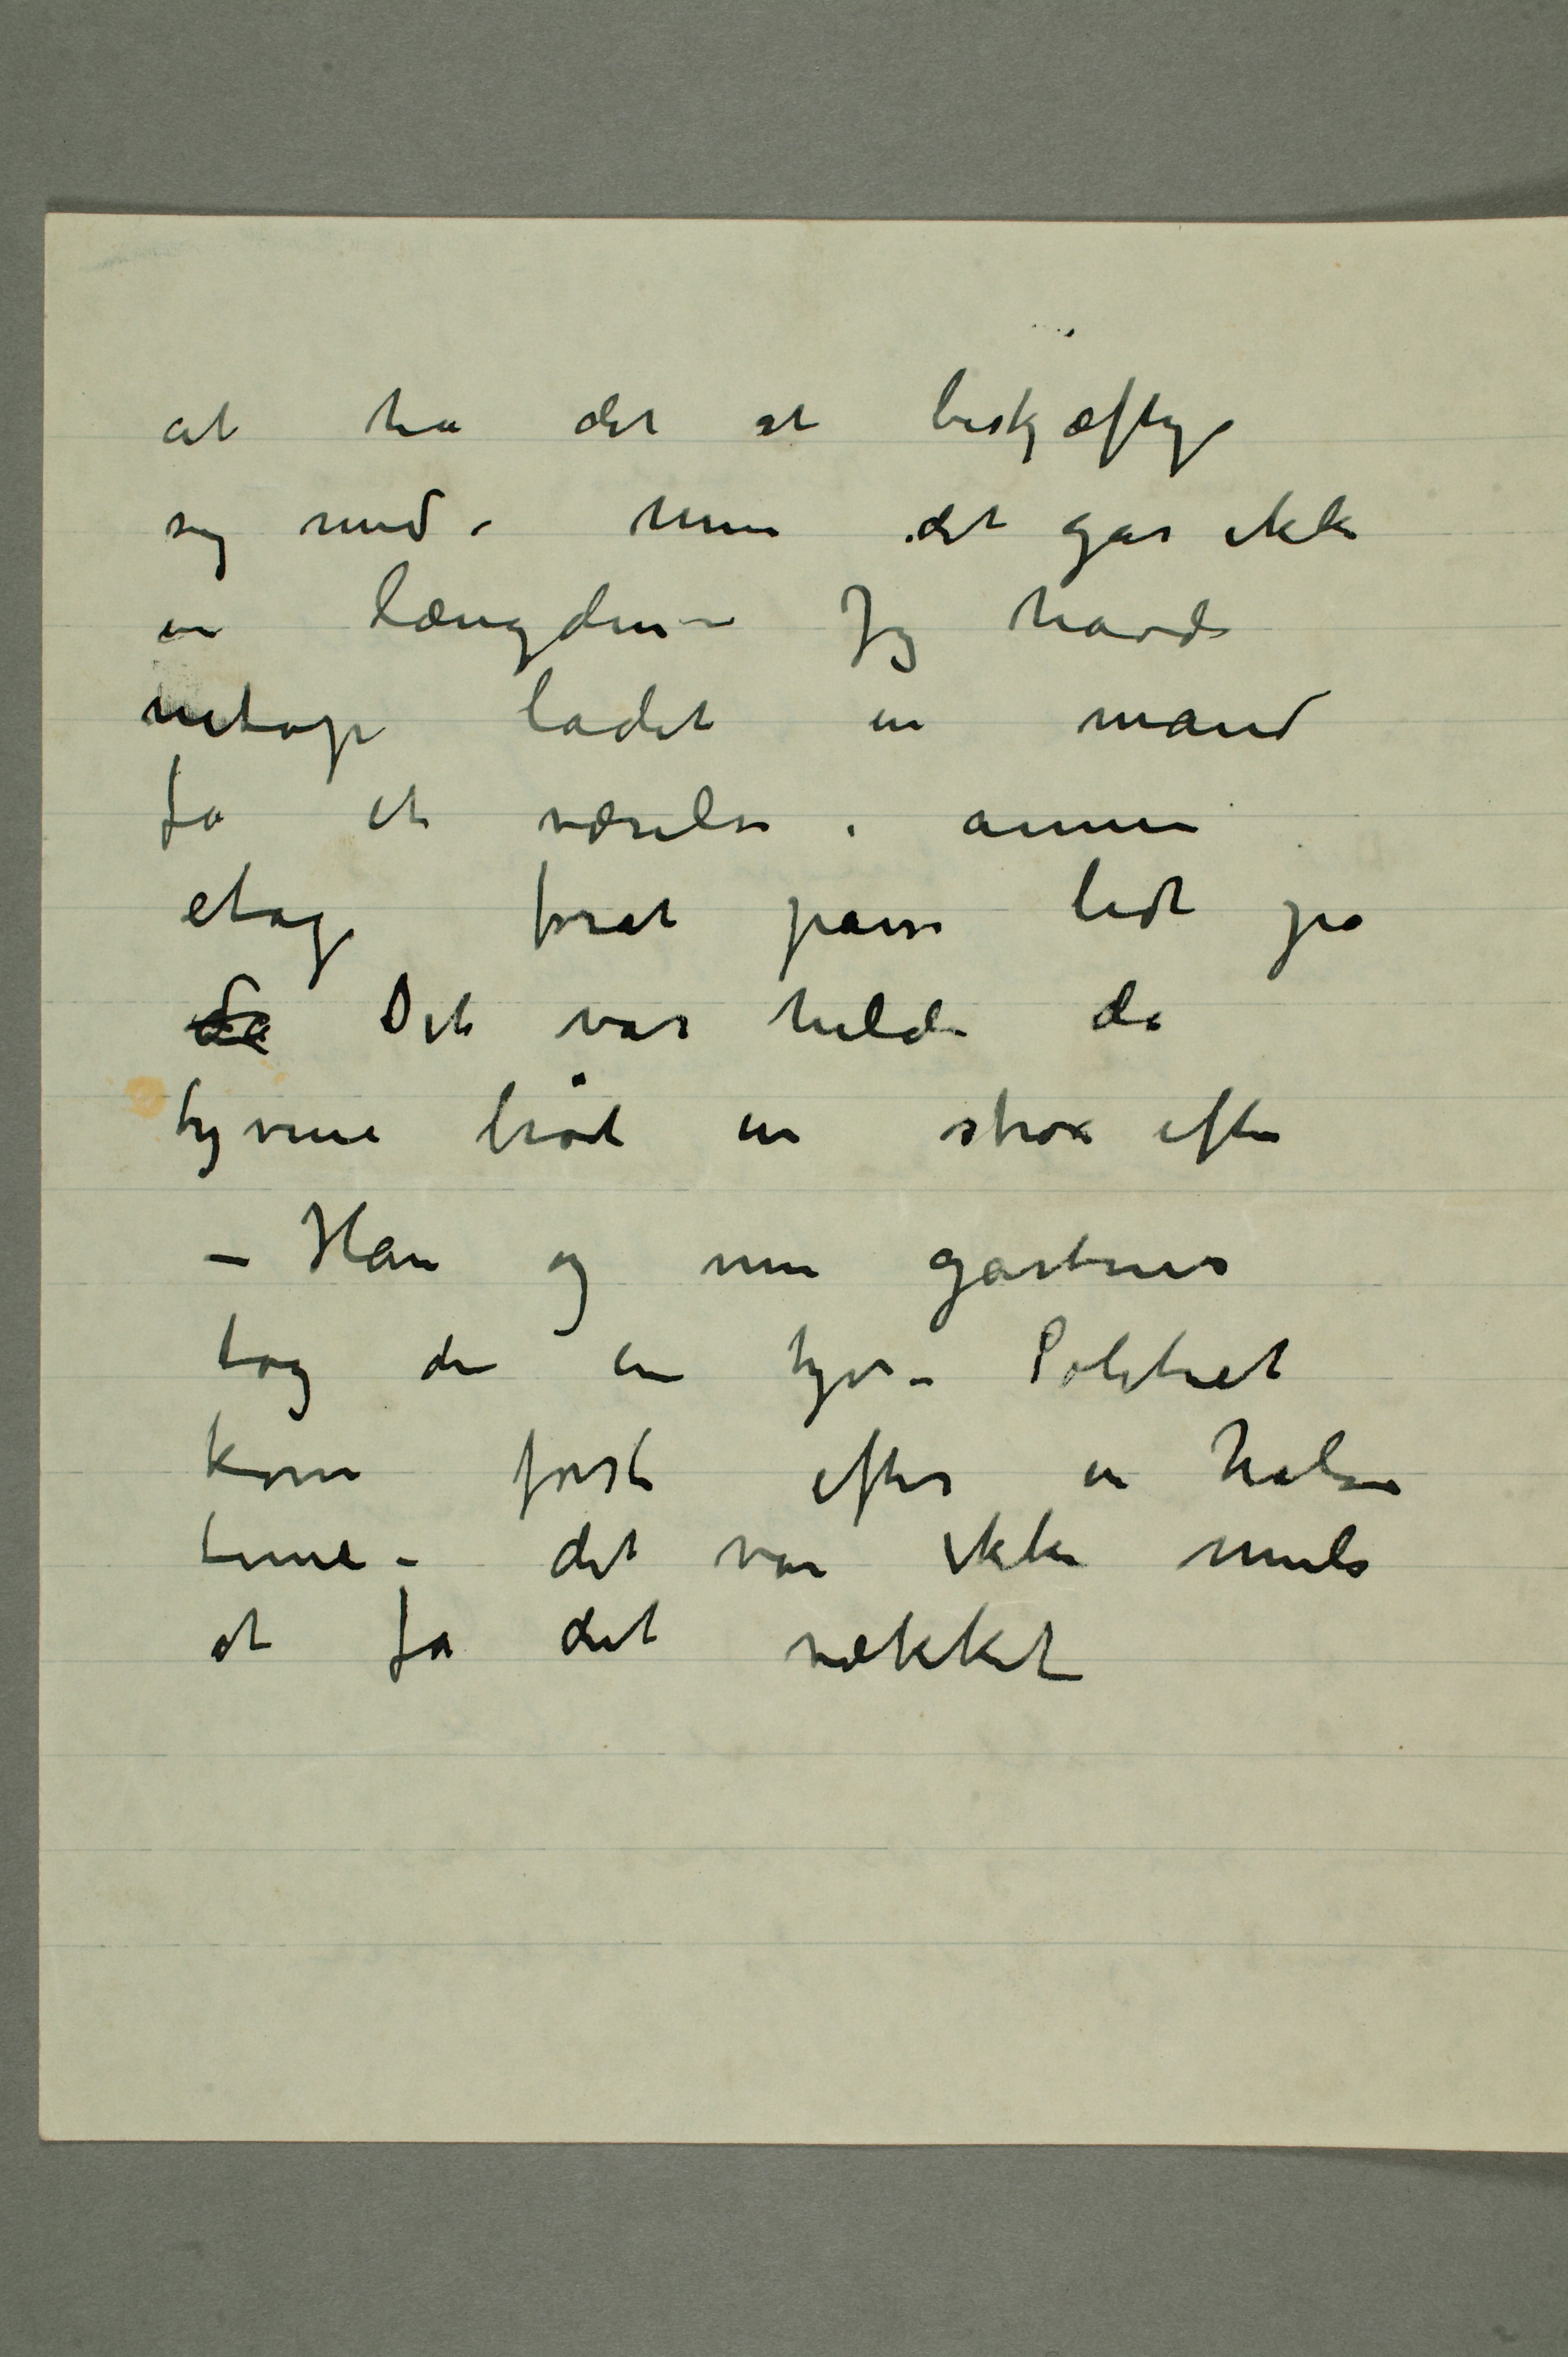 at ha det at beskjæftige
sig med. men det går ikke
i længden – Jeg havde
netop ladet en mand
få et værelse i annen
etage forat passe lidt på
da Det var heldi da
tyvene brød in strax efter
– Han og min gartner
tog den ene tyv – Politiet
kom først efter en halv
time – det var ikke mulig
at få det vækket